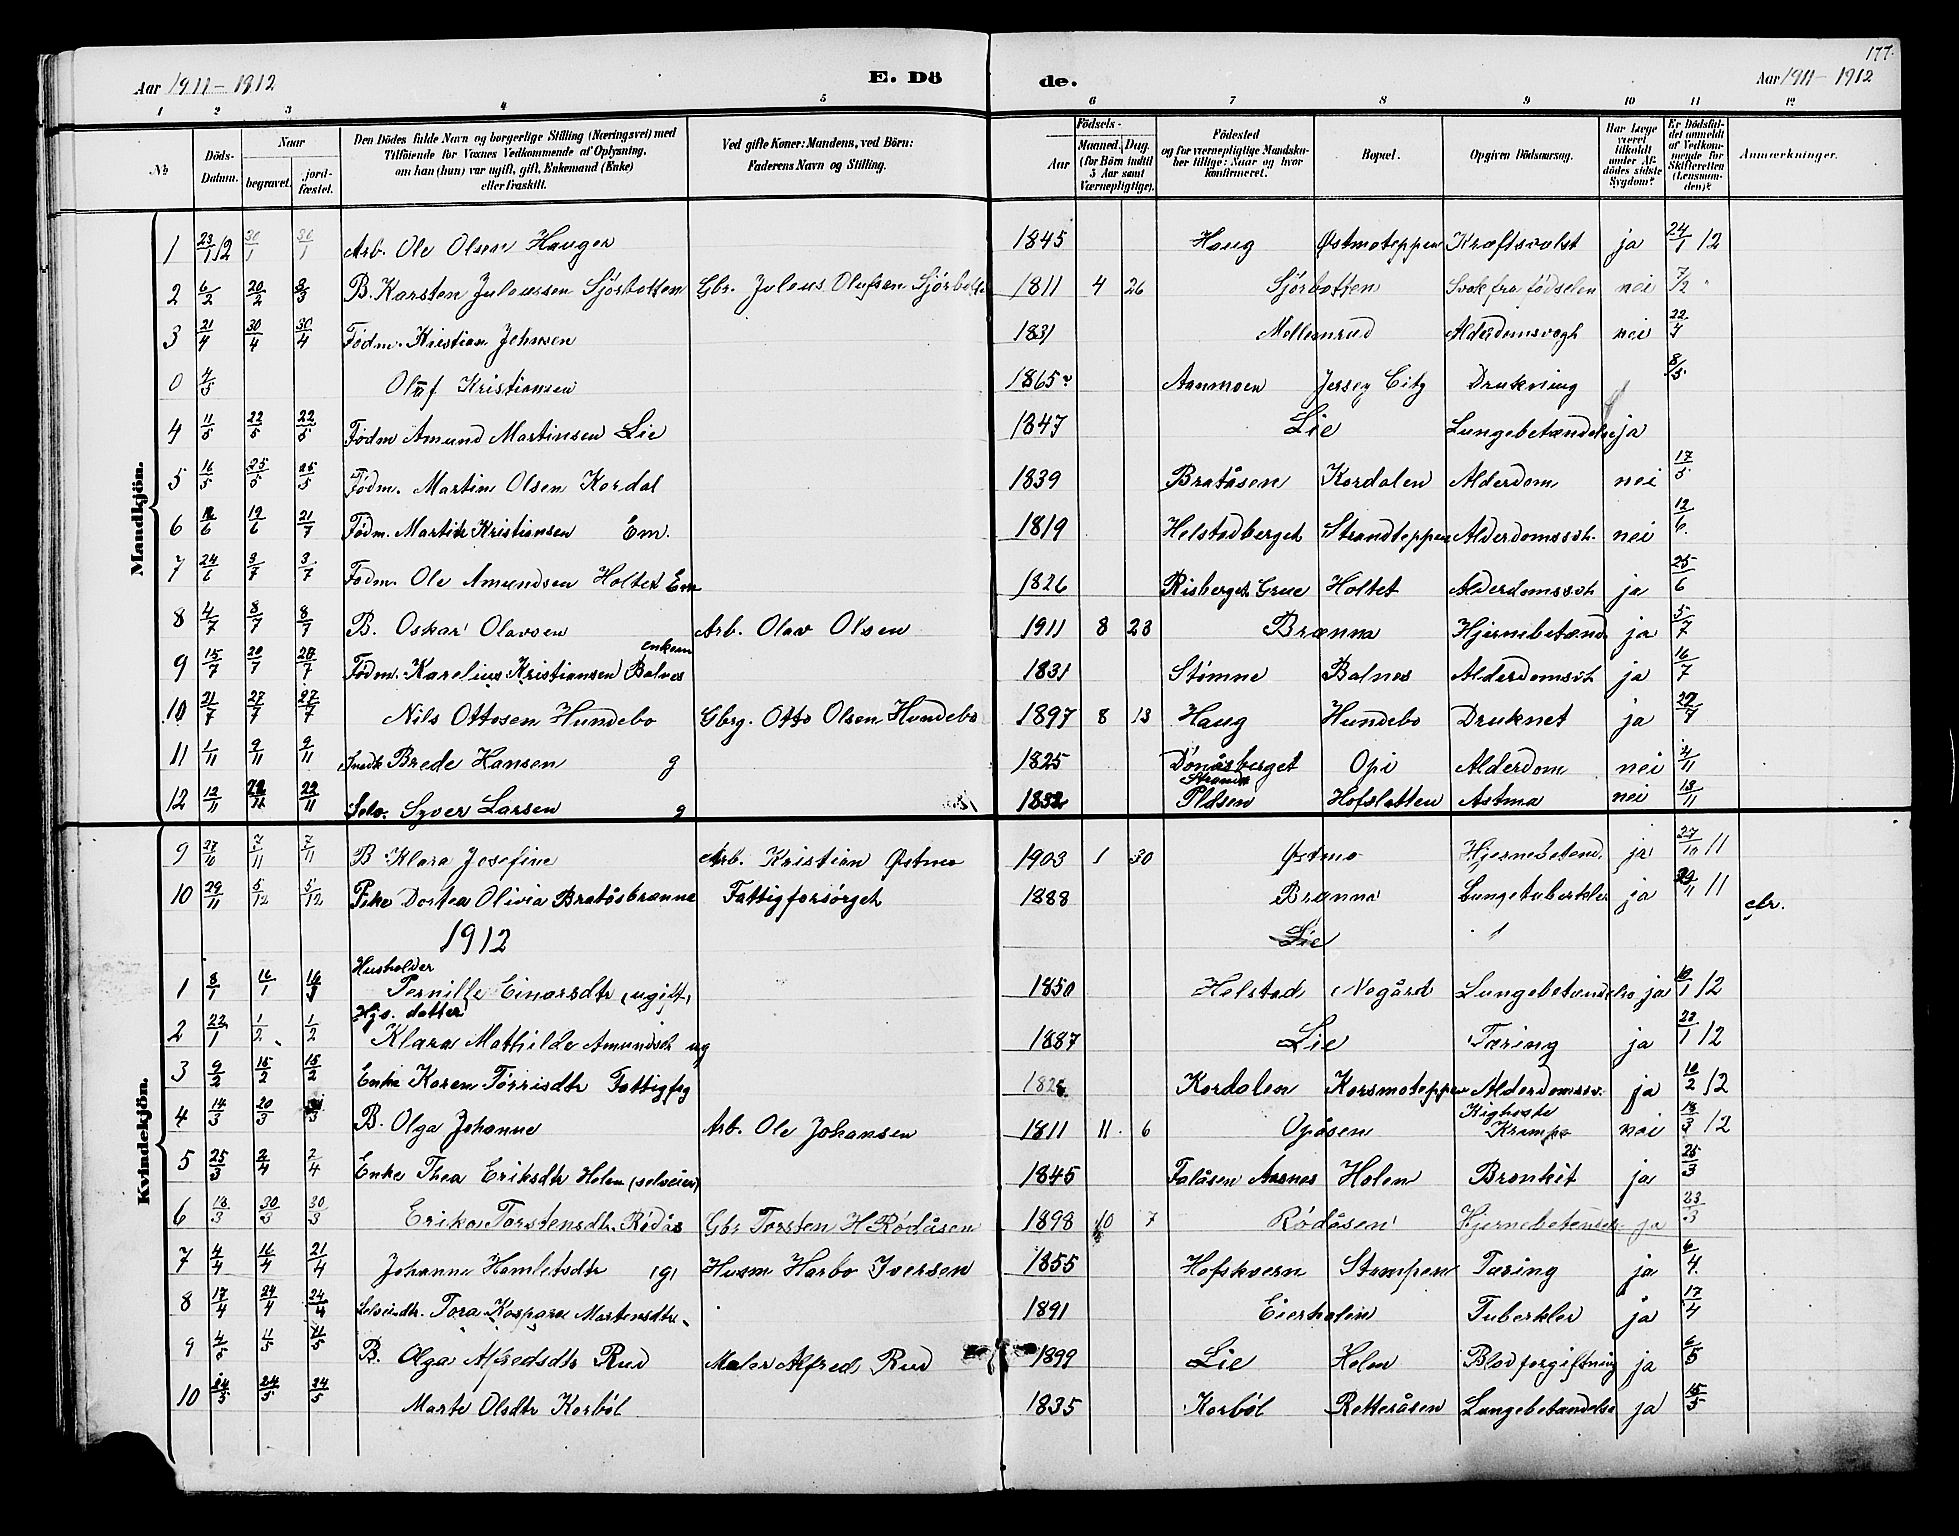 177.
Aar 1911-1912 E. Dö de. Aar 1911-1912
1 2 3 4 5 6 7 8 9 10 11 12
№ Döds-Datum. Naar begravet. jordfæstet. Den Dödes fulde Navn og borgerlige Stilling (Næringsvei) med Tilföiende for Voxnes Vedkommende af Oplysning, om han (hun) var ugift, gift, Enkemand (Enke) eller fraskilt. Ved gifte Koner: Mandens, ved Börn: Faderens Navn og Stilling. Födsels- Aar Maaned. Dag. (for Börn indtil 5 Aar samt Værnepligtige). Födested og for værnepligtige Mandskaber tillige: Naar og hvor konfirmeret. Bopæl. Opgiven Dödsaarsag. Har Læge været tilkaldt under Afdödes sidste Sygdom? Er Dödsfaldet anmeldt af Vedkommende for Skifteretten (Lensmanden)? Anmærkninger.
Mandkjön.
1 23/1 12 30/1 30/1 Arb. Ole Olsen Hauger 1845 Haug Østmoteppen Kræftsvulst ja 24/1 12
2 6/2 20/2 3/3 B. Karsten Juliussen Sjørbotten Gbr. Julius Olufsen Sjørbotten 1811 4 26 Sjørbotten Svak fra fødselen nei 7/2 "
3 21/4 30/4 30/4 Fødm. Kristian Johnsen 1831 Mellemrud Alderdomsvagh nei 22/4
0 4/5 Oluf Kristiansen 1865? Aanmoen Jersey City Drukning 8/5
4 11/5 22/5 22/5 Fødm Amund Martinsen Lie 1847 Lie Lungebetændelse ja
5 16/5 25/5 25/5 Fødm. Martin Olsen Kordal 1839 Bratåsen Kordalen Alderdom nei 17/5
6 12/6 19/6 21/7 Fødm. Martin Kristiansen Em. 1819 Helstadberget Strandteppen Alderdomssvh. nei 12/6.
7 24/6 3/7 3/7 Fødm. Ole Amundsen Holtet Em 1826 Risberget Grue Holtet Alderdomssvh ja 25/6
8 4/7 8/7 8/7 B. Oskar Olavsen Arb. Olav Olsen 1911 8 23 Brænna Hjernebetænd ja 5/7
9 15/7 20/7 20/7 Fødm. Karelius Kristiansen Balnes enkem 1831 Stømne Balnes Alderdomsvh ja 16/7
10 21/7 27/7 27/7 Nils Ottosen Hundebo Gbrg. Otto Olsen Hundebo 1897 8 13 Haug Hundebo Druknet ja 29/7
11 1/11 9/11 9/11 Snedk Brede Hansen g 1825 Dönåsberget Opi Alderdom nei 2/11
12 12/11 22/11 22/11 Selv. Syver Larsen g 1832 Strand Plåsen Hofslatten Astma nei 13/11
Kvindekjön.
9 27/10 7/11 7/11 B Klara Josefine Arb. Kristian Østmo 1903 1 30 Østmo Hjernebetend. ja 27/10 11
10 29/11 5/12 5/12 Pike Dortea Olivia Bratåsbrænna Fattigforsørget 1888 Brænna Lungetuberkler ja 29/11 11
1912 Lie
1 8/1 16/1 16/1 Husholder Pernille Einarsdtr (ugift) 1850 Helstad Nogård Lungebetændelse ja 10/1 12
2 22/1 1/2 1/2 Hjs. datter Klara Mathilde Amundsdt ug 1887 Lie Tæring ja 23/1 12
3 9/2 15/2 15/2 Enke Karen Tørrisdtr Fattigfsg Kordalen Korsmoteppen Alderdomssv. ja 10/2 12
4 14/3 20/3 B. Olga Johanne Arb. Ole Johansen 1811 11 6 Opåsen Kighoste Krampe nei 18/3 12
5 25/3 2/4 2/4 Enke Thea Eriksdtr Holen (selveier) 1845 Falåsen Aasnes Holen Bronkit ja 25/3
6 18/3 30/3 30/3 Erika Torstensdtr. Rödås Gbr Torsten H Rödåsen 1898 10 7 Rödåsen Hjernebetendels ja 23/3
7 4/4 16/4 21/4 Johanne Hamletsdtr (g) Husm Harbo Iversen 1855 Hofskvern Stampen Tæring ja 6/4.
8 17/4 24/4 24/4 Selveierdtr. Tora Kaspara Martensdtr 1891 Eierholen Tuberkler ja 17/4
9 4/5 11/5 11/5 B. Olga Alfredsdtr Rud Maler Alfred Rud 1899 Lie Holen Blodforgiftning ja 6/5
10 14/5 24/5 24/5 Marte Olsdtr Korböl 1835 Korböl Retteråsen Lungebetændelse ja 15/5